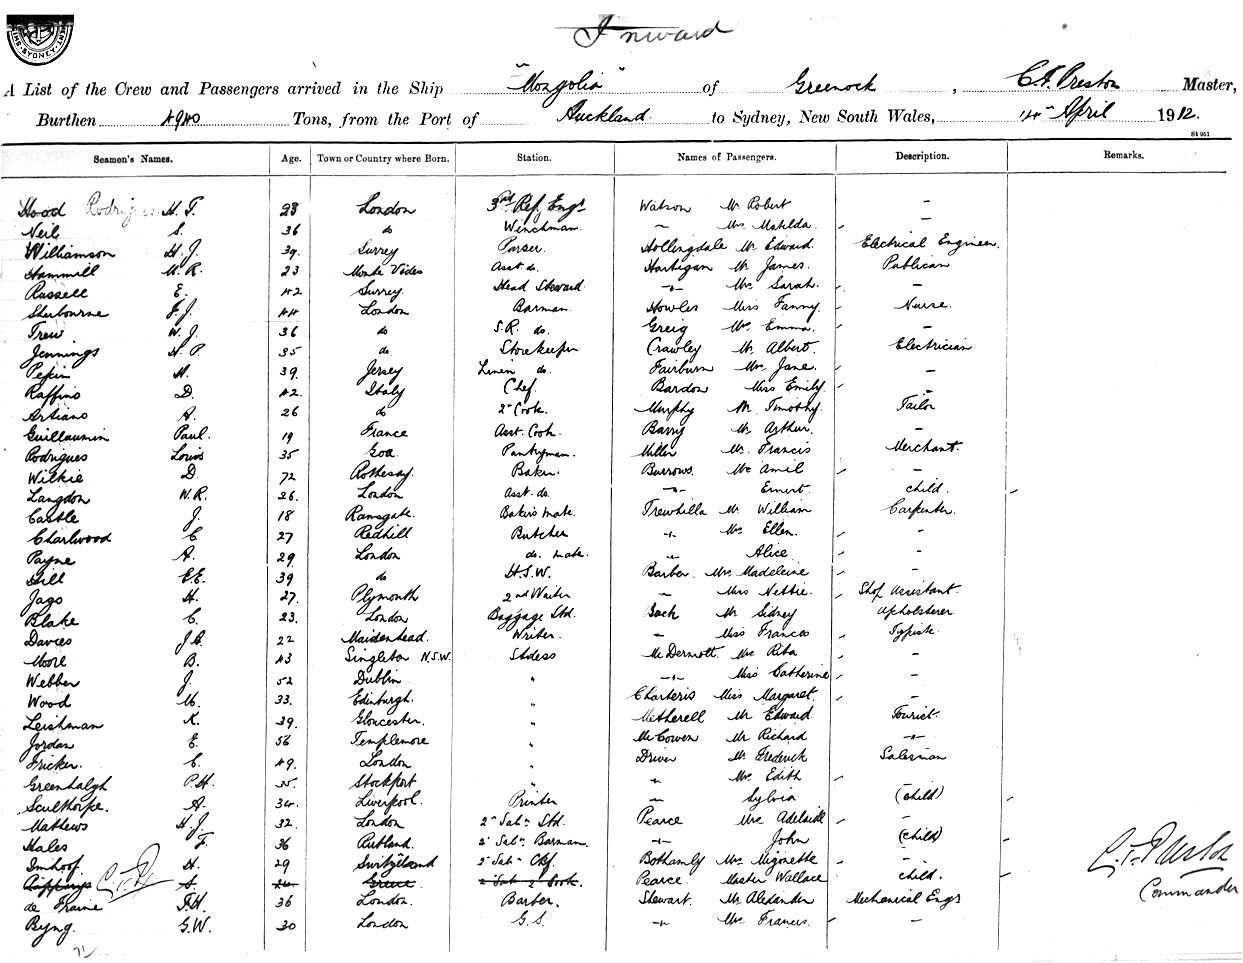 Inward
SYDNEY
A List of the Crew and Passengers arrived in the Ship "Mongolia" of Greenock, C.F. Preston Master,
Burthen 4940 Tons, from the Port of Auckland to Sydney, New South Wales, 14th April 1912.
St 951
Seamen's Names. Age. Town or Country where Born. Station. Names of Passengers. Description. Remarks.
Hood H. T. 28 London 3rd Ref. Engr Watson Mr Robert -
Neil S. 36 do Winchman. " Mrs Matilda. -
Williamson H. J. 39 Surrey Purser. Hollingdale Mr Edward Electrical Engineer
Hammill M. R. 23 Monte Video Asst. do. Hartigan Mr James. Publican
Russell E. 42 Surrey. Head Steward -"- Mrs Sarah. -
Sherbourne J. J. 44 London Barman. Howles Miss Fanny. Nurse.
Trew W. J. 36 do S.R. do. Greig Mrs Emma. -
Jennings H. P. 35 do. Storekeeper Crawley Mr Albert. Electrician
Pepin H. 39. Jersey Linen do. Fairburn Mrs Jane. -
Raffino D. 42 Italy Chef. Bardon Miss Emily. -
Artiano A. 26 do 2nd Cook. Murphy Mr Timothy. Tailor
Guillaumin Paul. 19 France Asst. Cook. Barry Mr Arthur. -
Rodrigues Louis 35 Goa Pantryman. Miller Mr Francis Merchant.
Wilkie D. 72 Rothesay. Baker. Burrows. Mrs Amil -
Langdon W. R. 26. London Asst. do. -"- Ernest. child.
Castle J. 18 Ramsgate. Baker's Mate. Trewhilla Mr William Carpenter.
Charlwood C 27 Redhill Butcher -"- Mrs Ellen. -
Payne A. 29 London do. Mate. -"- Alice -
Hill E.E. 39 do H.S.W. Barber. Mrs Madeleine -
Jago H. 27. Plymouth 2nd Writer " Miss Nettie. Shop Assistant.
Blake C. 23. London Baggage Std. Back Mr Sidney Upholsterer
Davies J. A. 22 Maidenhead. Writer. " Miss Frances Typiste.
Moore B. 43 Singleton N.S.W. Stdess McDermott Mrs Rita -
Webber J. 52 Dublin " -"- Miss Catherine -
Wood M. 33. Edinburgh. " Charteris Miss Margaret. -
Leishman K. 39. Gloucester. " Metherell Mr Edward Tourist.
Jordan E. 56 Templemore " McCowen Mr Richard -"-
Fricker. C. 49. London " Driver Mr Frederick Salesman
Greenhalgh P.H. 35. Stockport " " Mrs Edith -
Sculthorpe. A. 34. Liverpool. Printer " Sylvia (child)
Mathews H. J. 32. London 2nd Saln. Std. Pearce Mrs Adelaide -
Hales F. 36 Rutland. 2nd Saln. Barman. -"- John (child)
Imhoof. H. 29 Switzerland 2nd Saln Chf. Bothamly Mrs Mignonette -
S. 24 Greece 2nd Saln 2 Cook. Pearce Master Wallace child.
de Fraine F.H. 36 London. Barber. Stewart. Mr Alexander Mechanical Engr
Byng. G.W. 30 London G.S. -"- Mrs Frances. -
C. F. Preston
Commander